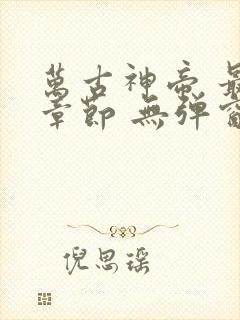 萬古神帝 最
章節 無彈窗
倪思瑶